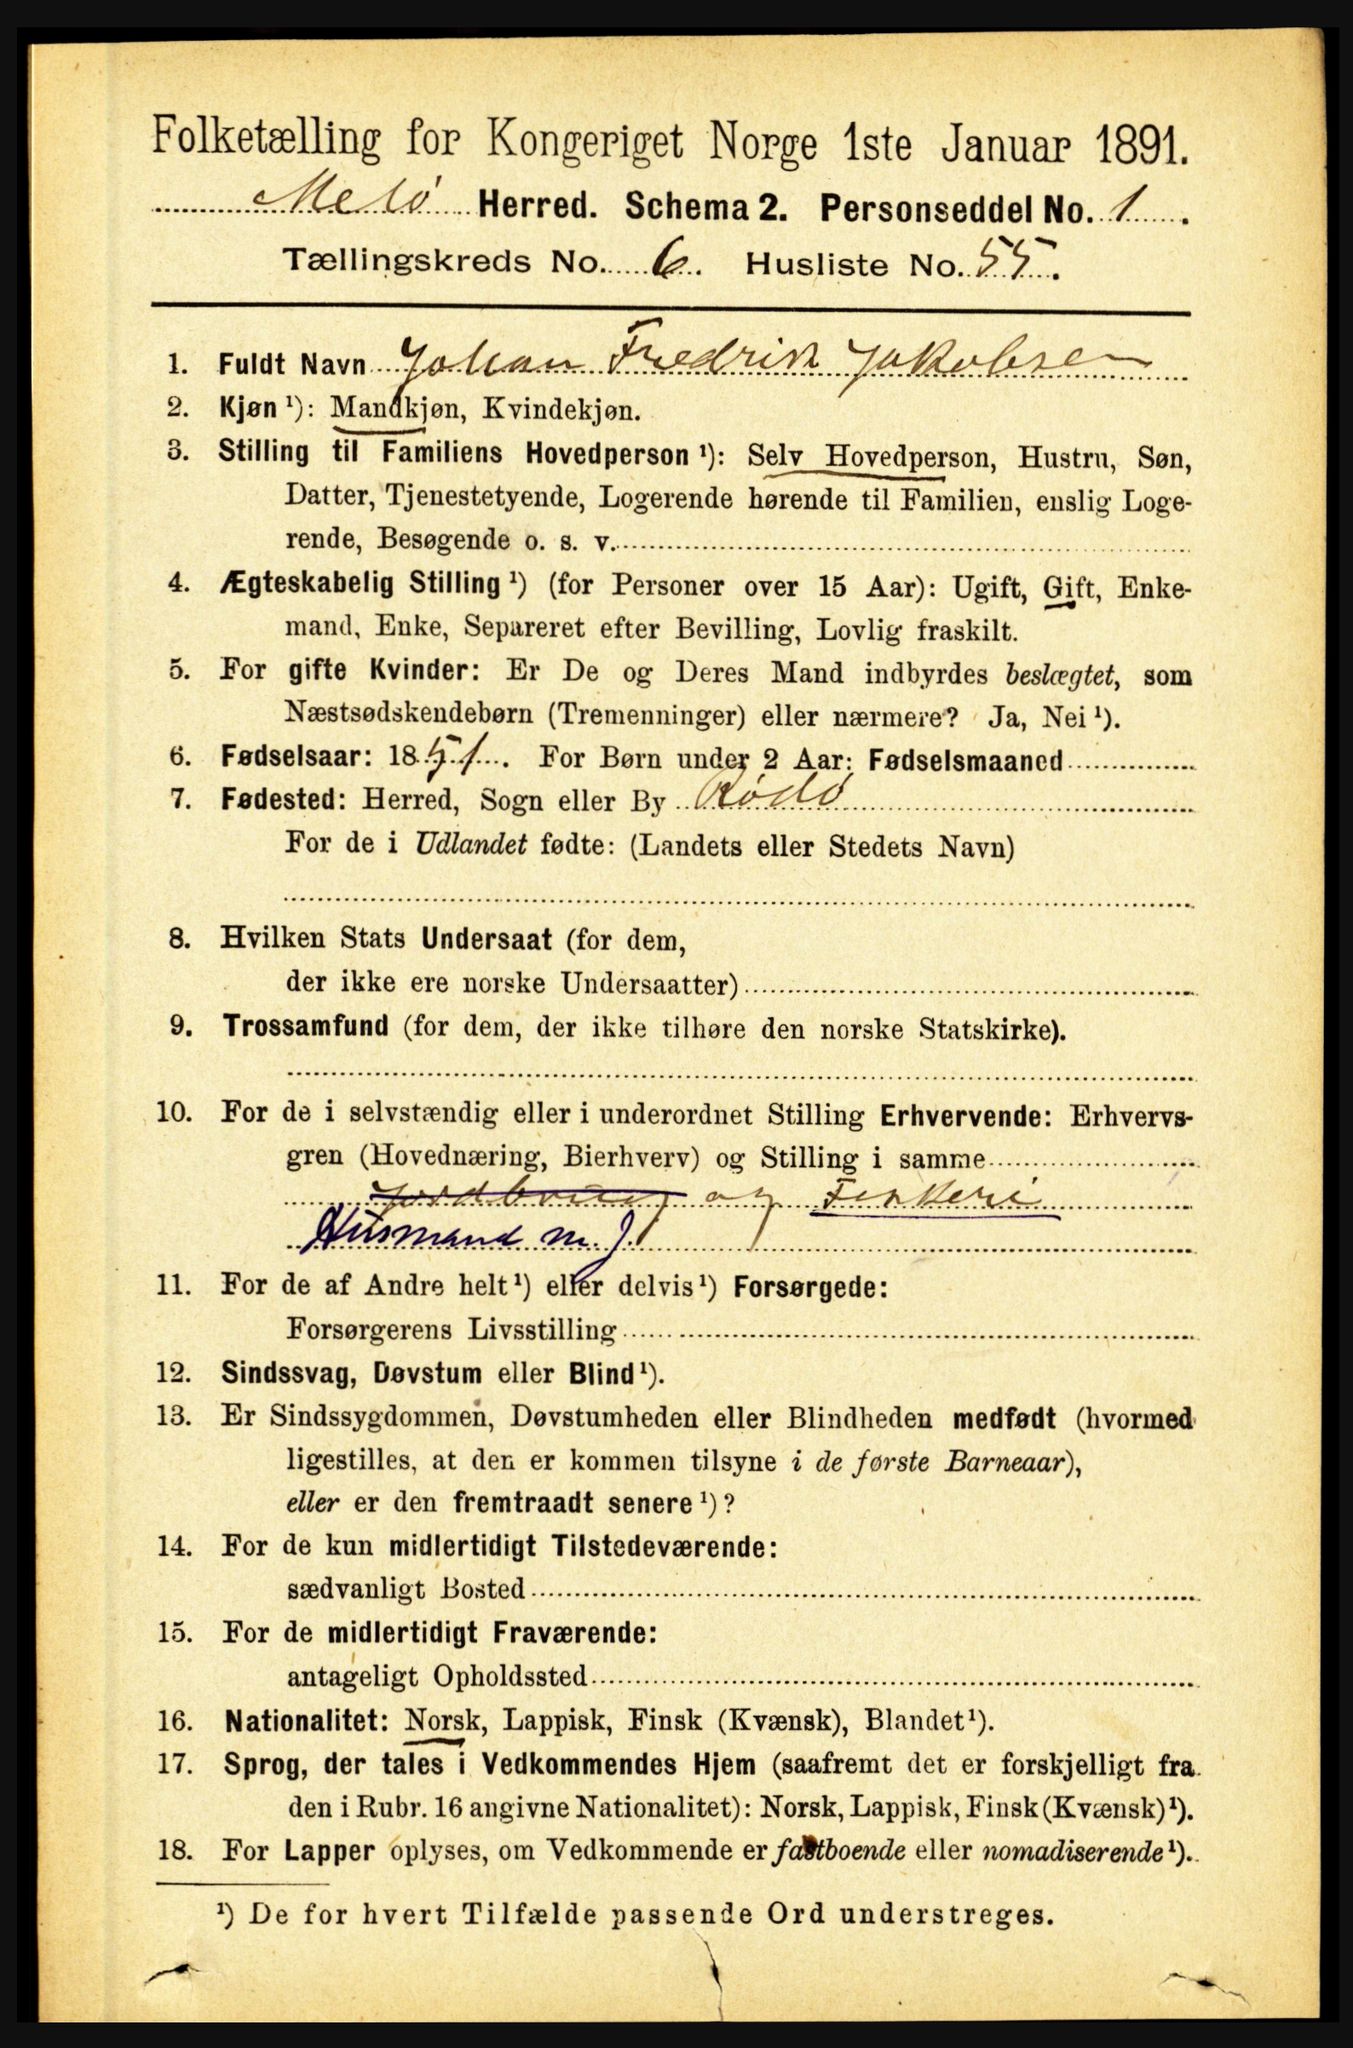 Folketælling for Kongeriget Norge 1ste Januar 1891.
Melø Herred. Schema 2. Personseddel No. 1.
Tællingskreds No. 6. Husliste No. 55.
1. Fuldt Navn Johan Fredrik Jakobsen
2. Kjøn ¹): Mandkjøn, Kvindekjøn.
3. Stilling til Familiens Hovedperson ¹): Selv Hovedperson, Hustru, Søn,
Datter, Tjenestetyende, Logerende hørende til Familien, enslig Loge-
rende, Besøgende o. s. v.
4. Ægteskabelig Stilling ¹) (for Personer over 15 Aar): Ugift, Gift, Enke-
mand, Enke, Separeret efter Bevilling, Lovlig fraskilt.
5. For gifte Kvinder: Er De og Deres Mand indbyrdes beslægtet, som
Næstsødskendebørn (Tremenninger) eller nærmere? Ja, Nei ¹).
6. Fødselsaar: 1851. For Børn under 2 Aar: Fødselsmaaned
7. Fødested: Herred, Sogn eller By Rødø
For de i Udlandet fødte: (Landets eller Stedets Navn)
8. Hvilken Stats Undersaat (for dem,
der ikke ere norske Undersaatter)
9. Trossamfund (for dem, der ikke tilhøre den norske Statskirke).
10. For de i selvstændig eller i underordnet Stilling Erhvervende: Erhvervs-
gren (Hovednæring, Bierhverv) og Stilling i samme
Jordbrug og Fiskeri
Husmand m. J.
11. For de af Andre helt ¹) eller delvis ¹) Forsørgede:
Forsørgerens Livsstilling
12. Sindssvag, Døvstum eller Blind ¹).
13. Er Sindssygdommen, Døvstumheden eller Blindheden medfødt (hvormed
ligestilles, at den er kommen tilsyne i de første Barneaar),
eller er den fremtraadt senere ¹)?
14. For de kun midlertidigt Tilstedeværende:
sædvanligt Bosted
15. For de midlertidigt Fraværende:
antageligt Opholdssted
16. Nationalitet: Norsk, Lappisk, Finsk (Kvænsk), Blandet ¹).
17. Sprog, der tales i Vedkommendes Hjem (saafremt det er forskjelligt fra
den i Rubr. 16 angivne Nationalitet): Norsk, Lappisk, Finsk (Kvænsk) ¹).
18. For Lapper oplyses, om Vedkommende er fastboende eller nomadiserende ¹).
¹) De for hvert Tilfælde passende Ord understreges.